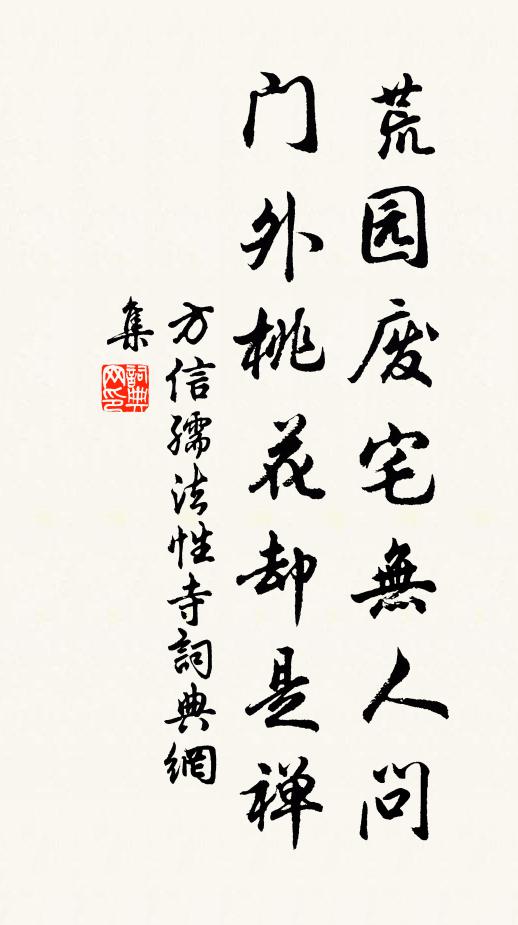 荒园废宅無人问
门外桃花却是禅
方信孺法性寺詞典網
集
詞典
网印